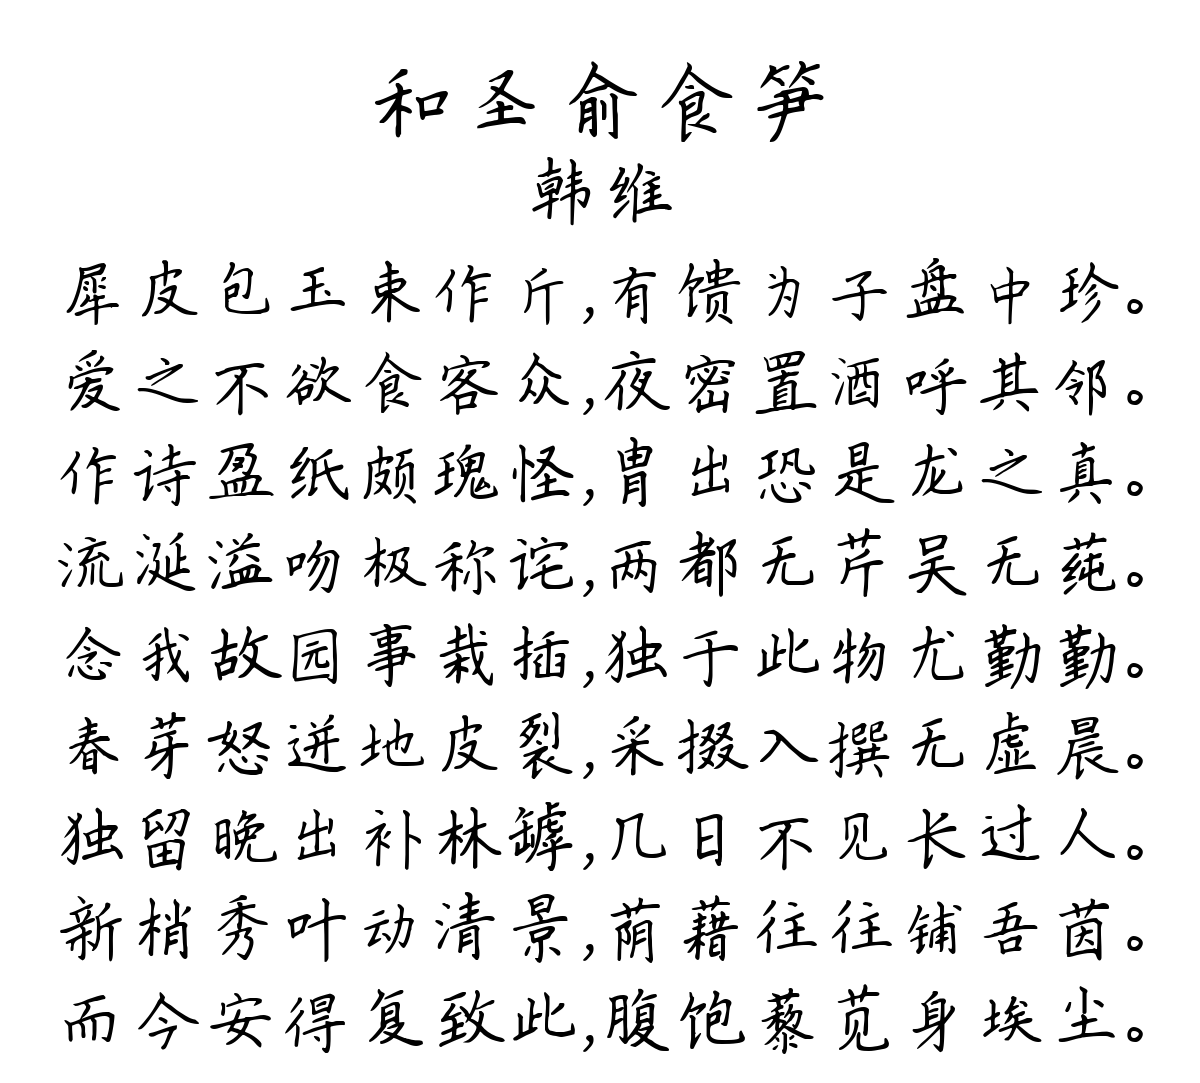 和圣俞食笋
韩维
犀皮包玉束作斤,有馈为子盘中珍。
爱之不欲食客众,夜密置酒呼其邻。
作诗盈纸颇瑰怪,胄出恐是龙之真。
流涎溢吻极称诧,两都无芹吴无莼。
念我故园事栽插,独于此物尤勤勤。
春芽怒迸地皮裂,采掇入撰无虚晨。
独留晚出补林罅,几日不见长过人。
新梢秀叶动清景,荫藉往往铺吾茵。
而今安得复致此,腹饱藜苋身埃尘。